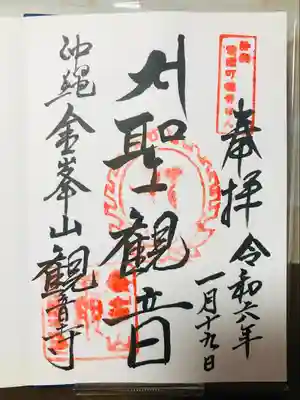 奉拝 令和六年
一月十九日
聖観音
沖縄 金峯山 観音寺